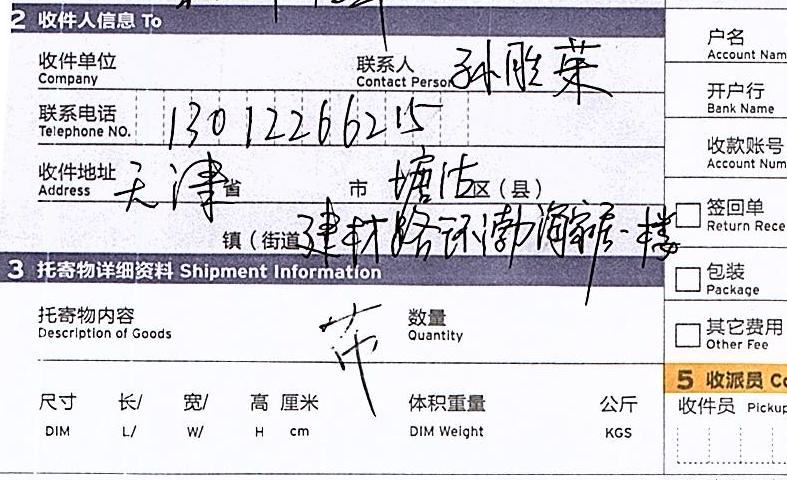 2 收件人信息 To
收件单位 Company 联系人 Contact Person 孙胜荣
联系电话 Telephone NO. 13012266215
收件地址 Address 天津 省 市 塘沽 区（县）
镇（街道 建材路环渤海家居一楼
3 托寄物详细资料 Shipment Information
托寄物内容 Description of Goods 数量 Quantity
尺寸 长/ 宽/ 高 厘米 体积重量 公斤
DIM L/ W/ H cm DIM Weight KGS
户名
Account Nam
开户行
Bank Name
收款账号
Account Num
签回单
Return Rece
包装
Package
其它费用
Other Fee
5 收派员 Co
收件员 Pickup